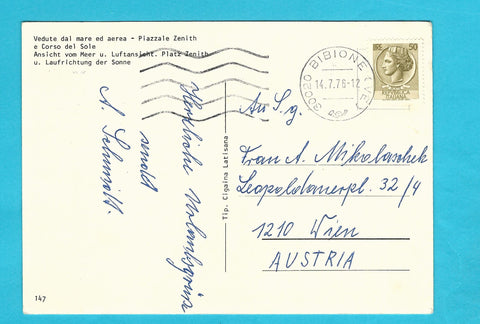 Vedute dal mare ed aerea - Piazzale Zenith
e Corso del Sole
Ansicht vom Meer u. Luftansicht. Platz Zenith
u. Laufrichtung der Sonne
30020 BIBIONE (VE)
14.7.76-12
50
REPUBBLICA
ITALIANA
Herzliche Urlaubsgrüsse
sendet
A. Schmidt.
Tip. Cigaina Latisana
An S. g.
Frau A. Mikolaschek
Leopoldauerpl. 32/4
1210 Wien
AUSTRIA
147